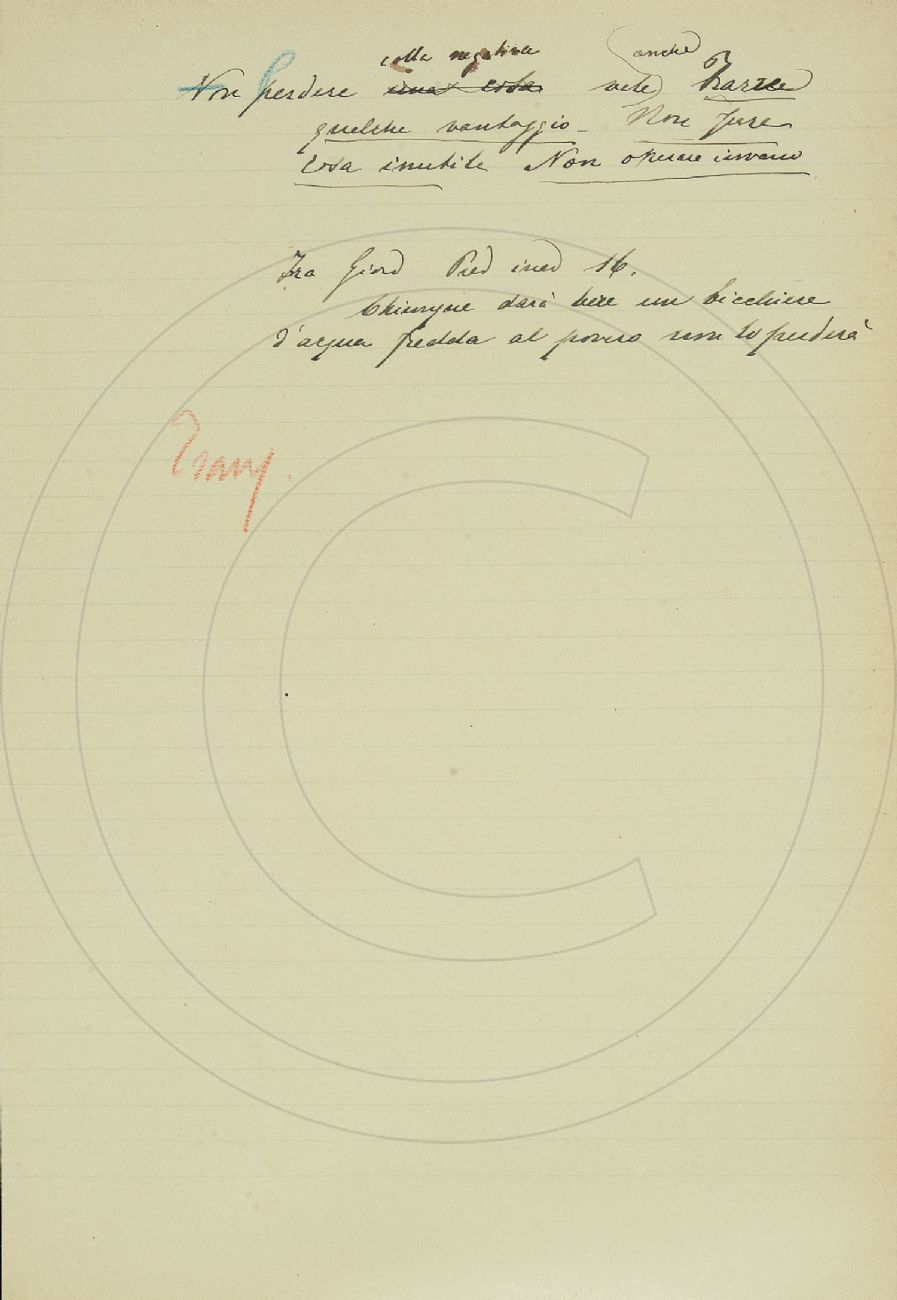 colla negativa anche
Non perdere una cosa vale Trarre
qualche vantaggio - Non fare
cosa inutile Non operare invano
Fra Giord Pred ined 16.
Chiunque darà bere un bicchiere
d'acqua fredda al povero non lo perderà